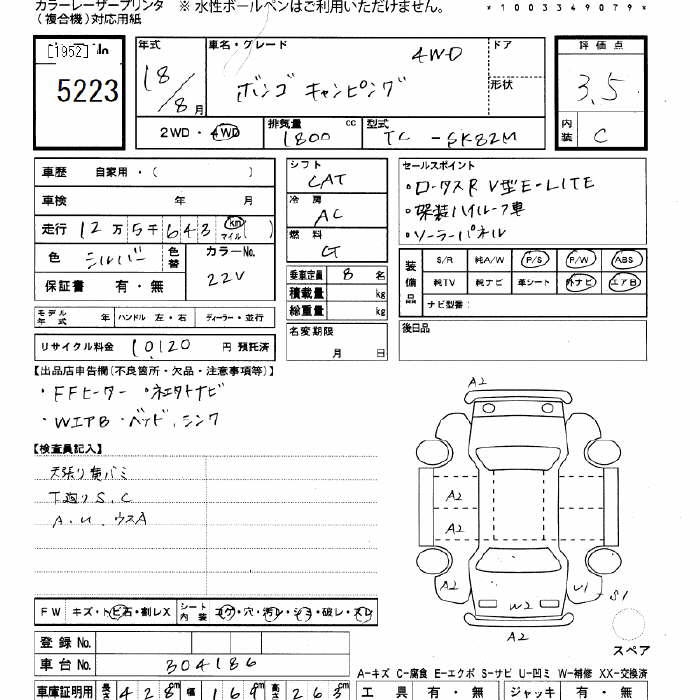 カラーレーザープリンタ ※ 水性ボールペンはご利用いただけません。
(複合機)対応用紙
*1003349079*
[1952] in
5223
年式 18/8月
車名・グレード 4WD
ボンゴ キャンピング
ドア
形状
評価点
3.5
内装 C
2WD・4WD
排気量 1800 cc
型式 TC - SK82M
車歴 自家用・( )
車検 年 月
走行 12万5千643 km マイル ( )
色 シルバー 色替
カラーNo. 22V
保証書 有・無
シフト CAT
冷房 AC
燃料 G
乗車定員 8名
積載量 kg
総重量 kg
名変期限 月 日
セールスポイント
・ロータスR V型E-LITE
・架装ハイルーフ車
・ソーラーパネル
装備品 S/R 純A/W P/S P/W ABS
純TV 純ナビ 革シート 外ナビ エアB
ナビ型番:
後日品
モデル年式 年 ハンドル 左・右 ディーラー・並行
リサイクル料金 10,120 円 預託済
【出品店申告欄(不良箇所・欠品・注意事項等)】
・FFヒーター ・ネエタトナビ
・WエアB ・ベッド,シンク
【検査員記入】
天張り黄バミ
下廻りS、C
A、U、ウスA
A2
A2
A2
A2
A2
W2
U1
S1
A2
スペア
FW キズ・トビ石・割レX
シート内装 コゲ・穴・汚レ・シミ・破レ・スレ
登録No.
車台No. 304186
A-キズ C-腐食 E-エクボ S-サビ U-凹ミ W-補修 XX-交換済
車庫証明用 長さ 428cm 幅 169cm 高さ 263cm
工具 有・無 ジャッキ 有・無